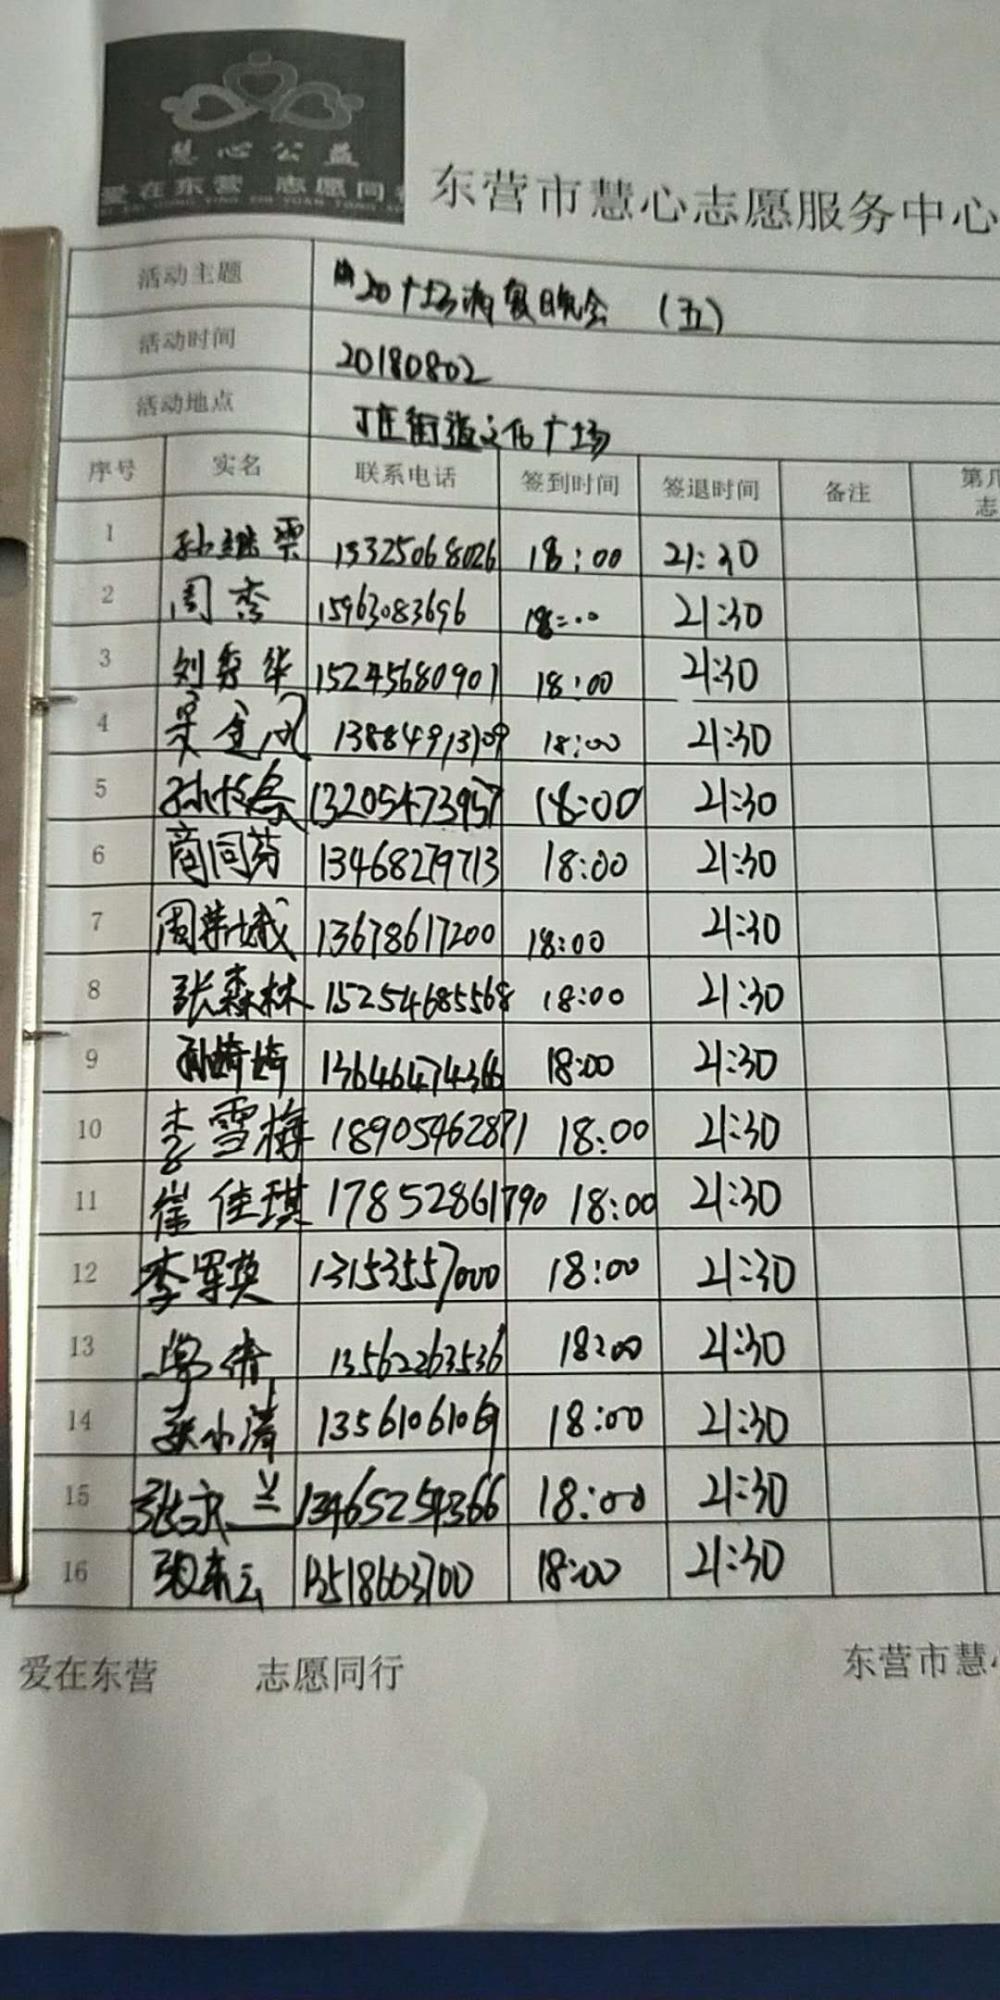 慧心公益
爱在东营 志愿同
东营市慧心志愿服务中心
活动主题 广场消夏晚会 (五)
活动时间 20180802
活动地点 丁庄街道文化广场
序号 实名 联系电话 签到时间 签退时间 备注 第几 志
1 15325068026 18:00 21:30
2 周秀 15963083696 18:00 21:30
3 刘秀华 15245680901 18:00 21:30
4 18:00 21:30
5 13205473957 18:00 21:30
6 商同芬 13468279713 18:00 21:30
7 周荣娥 13678617200 18:00 21:30
8 张森林 15254685568 18:00 21:30
9 孙崎崎 13646474366 18:00 21:30
10 李雪梅 18905462871 18:00 21:30
11 崔佳琪 17852861790 18:00 21:30
12 李军英 13153557000 18:00 21:30
13 13562263536 18:00 21:30
14 张小清 18:00 21:30
15 张永兰 13465254366 18:00 21:30
16 张东云 13518663700 18:00 21:30
爱在东营 志愿同行 东营市慧心